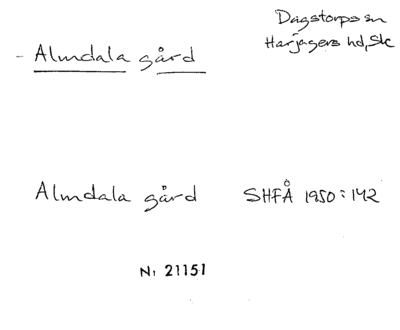 Dagstorps sn
Harjagers hd, Sk
- Almdala gård
Almdala gård SHFÅ 1950:142
Nr 21151